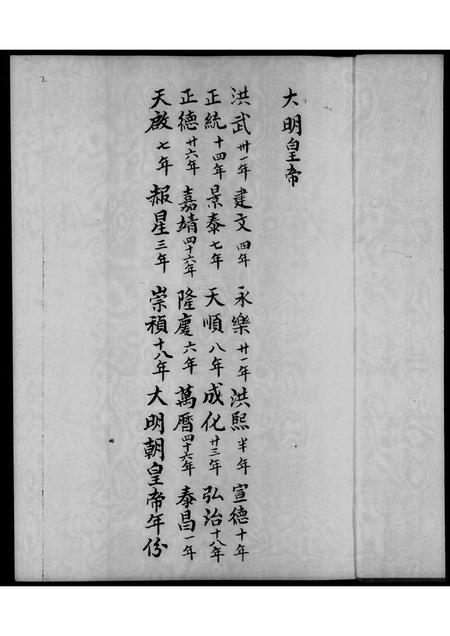 大明皇帝
洪武廿一年建文四年永樂廿一年洪熙半年宣德十年
正統十四年景泰七年天順八年成化廿三年弘治十八年
正德廿六年嘉靖四十六年隆慶六年萬曆四十六年泰昌一年
天啟七年赧星三年崇禎十八年大明朝皇帝年份
2